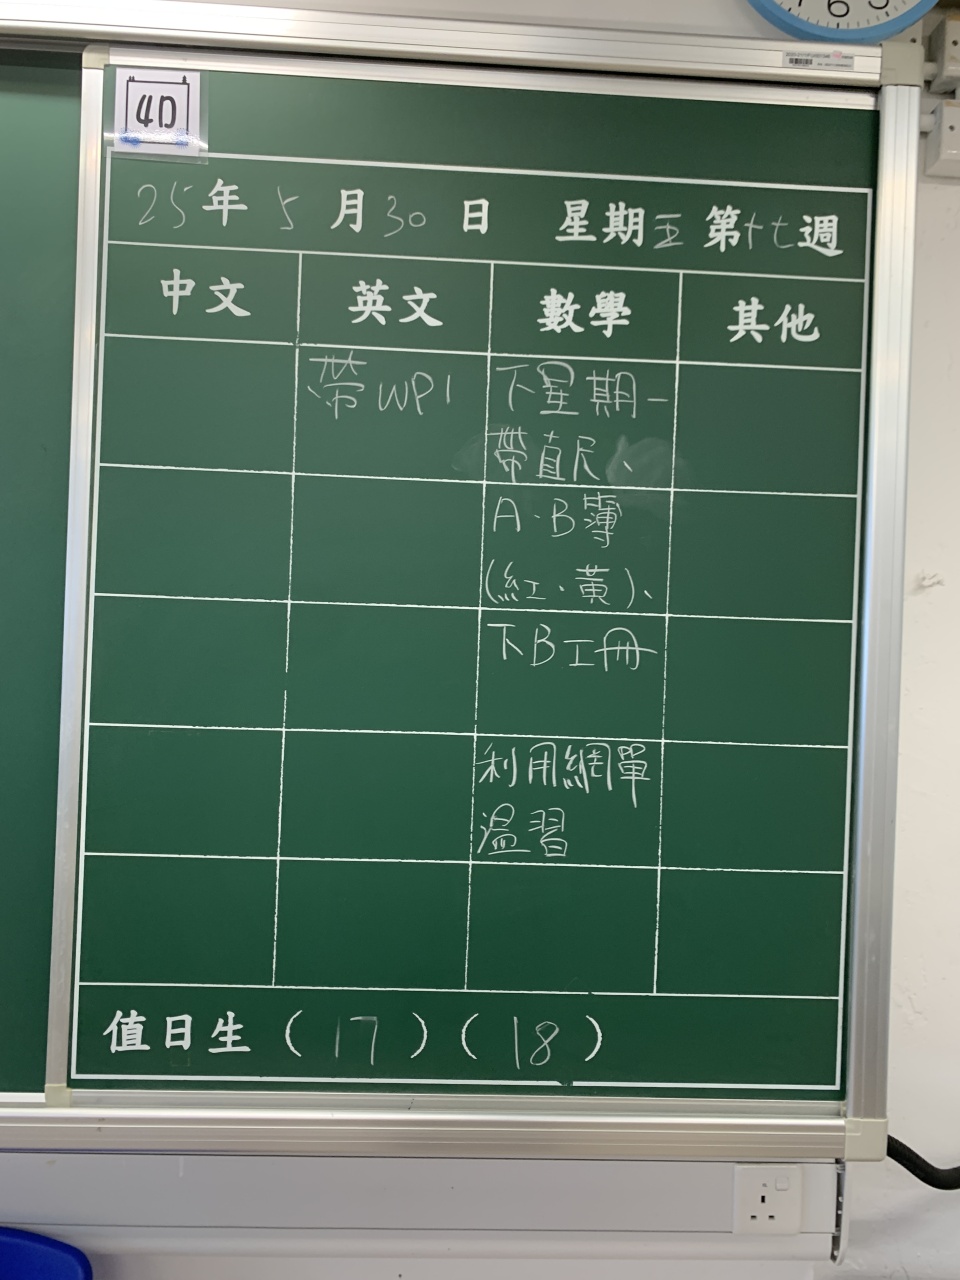 4D
25年5月30日 星期五第十七週
中文 英文 數學 其他
帶WP1
下星期一
帶直尺、
A.B簿
(紅.黃)、
下B工冊
利用網單
溫習
值日生(17)(18)
6 5